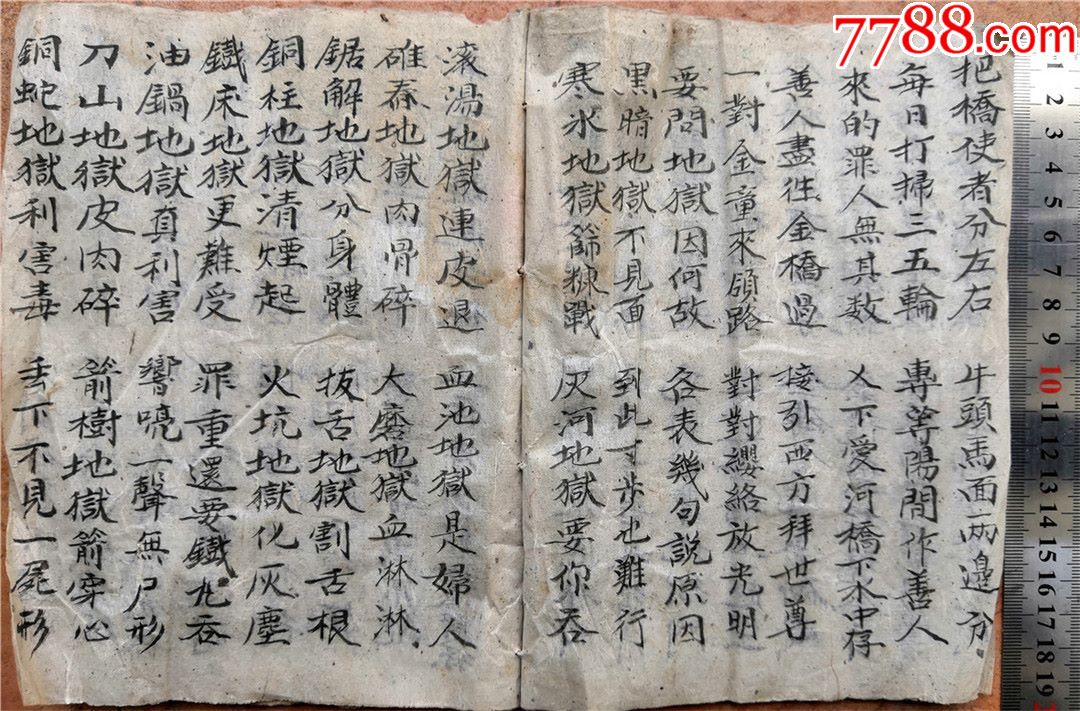 7788.com
把橋使者分左右 牛頭馬面兩邊分
每日打掃三五輪 專等陽間作善人
來的罪人無其数 乂下愛河橋下水中存
善人盡往金橋過 接引西方拜世尊
一對金童來領路 對對纓絡放光明
要問地獄因何故 各表幾句說原因
黑暗地獄不見面 到此寸步也難行
寒氷地獄篩糠戰 灰河地獄要你吞
滚湯地獄連皮退 血池地獄是婦人
碓舂地獄肉骨碎 大磨地獄血淋淋
鋸解地獄分身體 抜舌地獄割舌根
銅柱地獄清煙起 火坑地獄化灰塵
鐵床地獄更難受 罪重還要鐵丸吞
油鍋地獄真利害 響喨一聲無尸形
刀山地獄皮肉碎 箭樹地獄箭穿心
銅蛇地獄利害毒 丢下不見一屍形
1 2 3 4 5 6 7 8 9 10 11 12 13 14 15 16 17 18 19